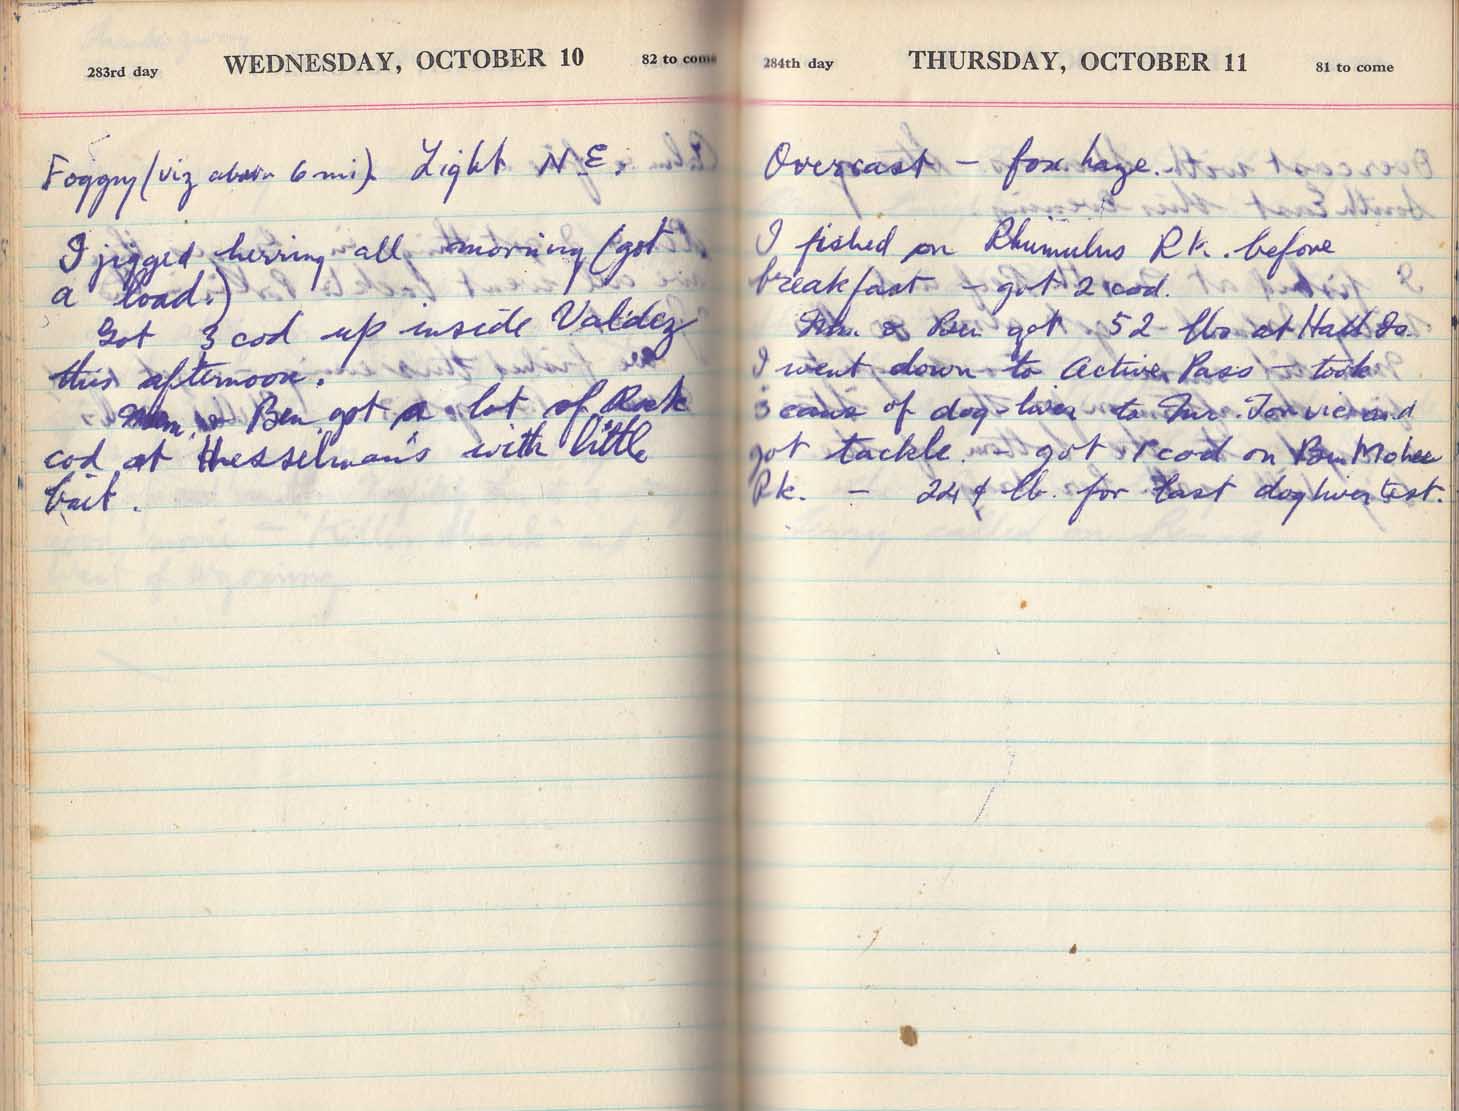 283rd day WEDNESDAY, OCTOBER 10 82 to come
Foggy (viz above 6 mi). Light N.E.
I jigged herring all morning (got
a load.)
Got 3 cod up inside Valdez
this afternoon.
Ben got a lot of Rock
cod at Hesselman's with little
bait.
284th day THURSDAY, OCTOBER 11 81 to come
Overcast — haze.
I fished on Rhumulus Rk. before
breakfast — got 2 cod.
& Ben got 52 lbs at Hall Is.
I went down to Active Pass — took
3 cans of dog-liver to and
got tackle. got 1 cod on Ben Mohee
Rk. — 24¢ lb. for last dogliver test.